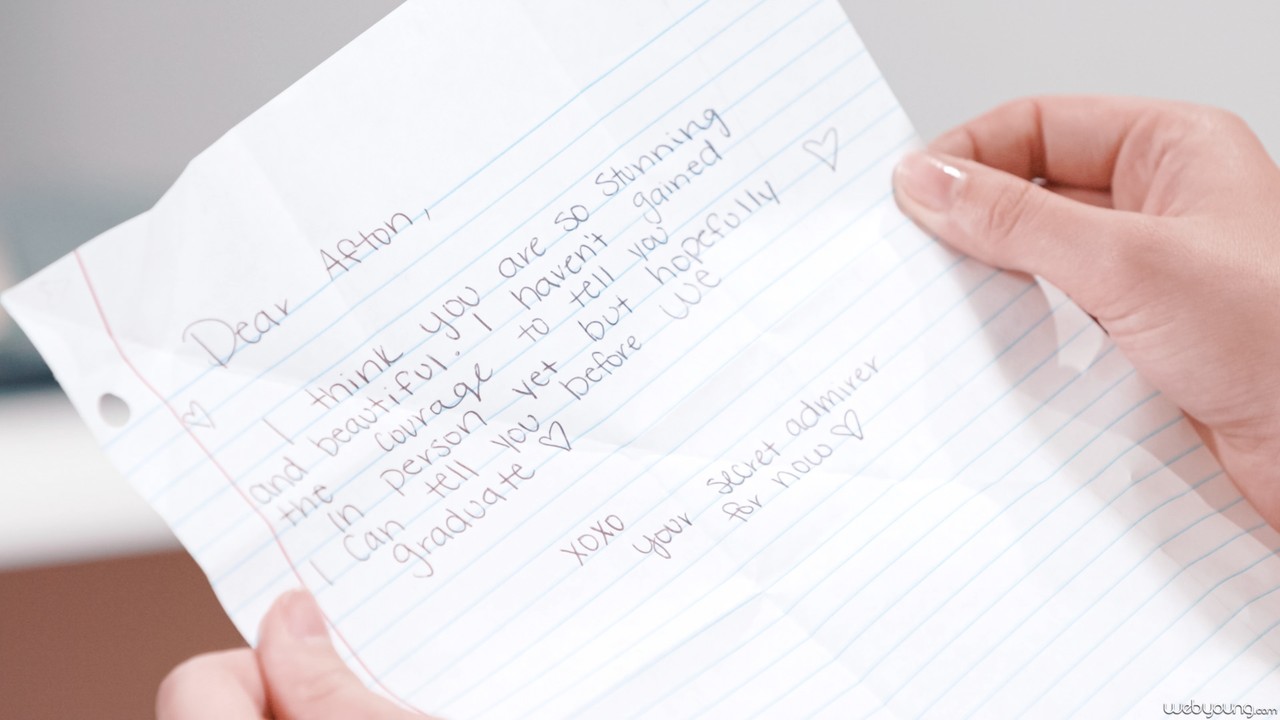 Dear Afton,
I think you are so stunning
and beautiful. I haven't gained
the courage to tell you
in person yet but hopefully
I can tell you before we
graduate ♡
xoxo
your secret admirer
for now ♡
webyoung.com